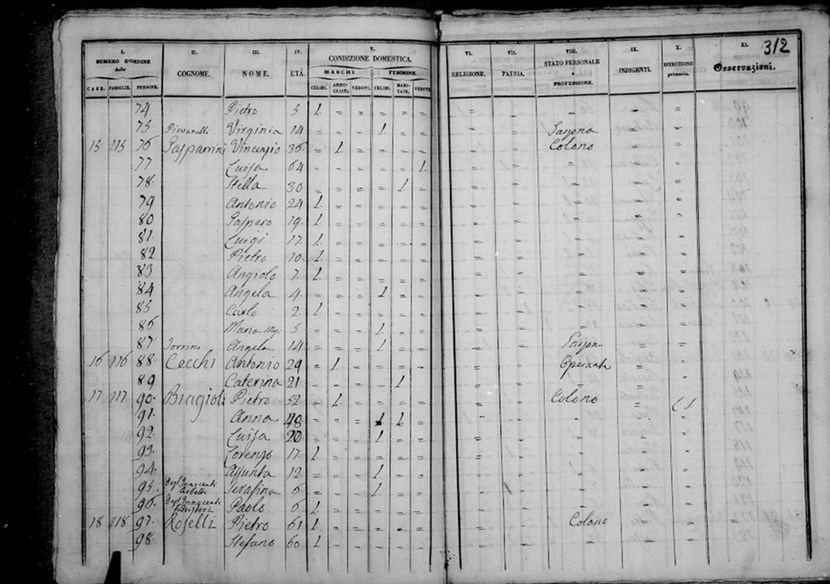 312
I. II. III. IV. V. VI. VII. VIII. IX. X. XI.
NUMERO D'ORDINE delle COGNOME. NOME. ETÀ. CONDIZIONE DOMESTICA. RELIGIONE. PATRIA. STATO PERSONALE e PROFESSIONE. INDIGENTI. ISTRUZIONE primaria. Osservazioni.
MASCHI FEMMINE.
CASE. FAMIGLIE. PERSONE. CELIBI. AMMO- GLIATI. VEDOVI. CELIBI. MARI- TATE. VEDOVE
74 Pietro 5 1 = = = = = = = = =
75 Virginia 14 = = = 1 = = = = =
15 115 76 Gasparrini Vincenzio 36 = 1 = = = = = = Colono = =
77 Luisa 64 = = = = = 1 = = = = =
78 Stella 30 = = = = 1 = = = = = =
79 Antonio 24 1 = = = = = = = = = =
80 Gaspero 19 1 = = = = = = = = = =
81 Luigi 17 1 = = = = = = = = = =
82 Pietro 10 1 = = = = = = = = = =
83 Angiolo 7 1 = = = = = = = = = =
84 Angela 4 = = = 1 = = = = = = =
85 Carlo 2 1 = = = = = = = = = =
86 Maria 5 = = = 1 = = = = = = =
87 Angela 14 = = = 1 = = = = = =
16 116 88 Cecchi Antonio 29 = 1 = = = = = = Operante = =
89 Caterina 21 = = = = 1 = = = = = =
17 117 90 Biagioli Pietro 52 = 1 = = = = = = Colono =
91 Anna 48 = = = 1 = = = = =
92 Luisa 20 = = = 1 = = = = = = =
93 Lorenzo 17 1 = = = = = = = = = =
94 Assunta 12 = = = 1 = = = = = = =
95 Degl'Innocenti Serafina 6 = = = 1 = = = = = = =
96 Degl'Innocenti Paolo 6 1 = = = = = = = = = =
18 118 97 Roselli Pietro 61 1 = = = = = = = Colono = =
98 Stefano 60 1 = = = = = = = = = =